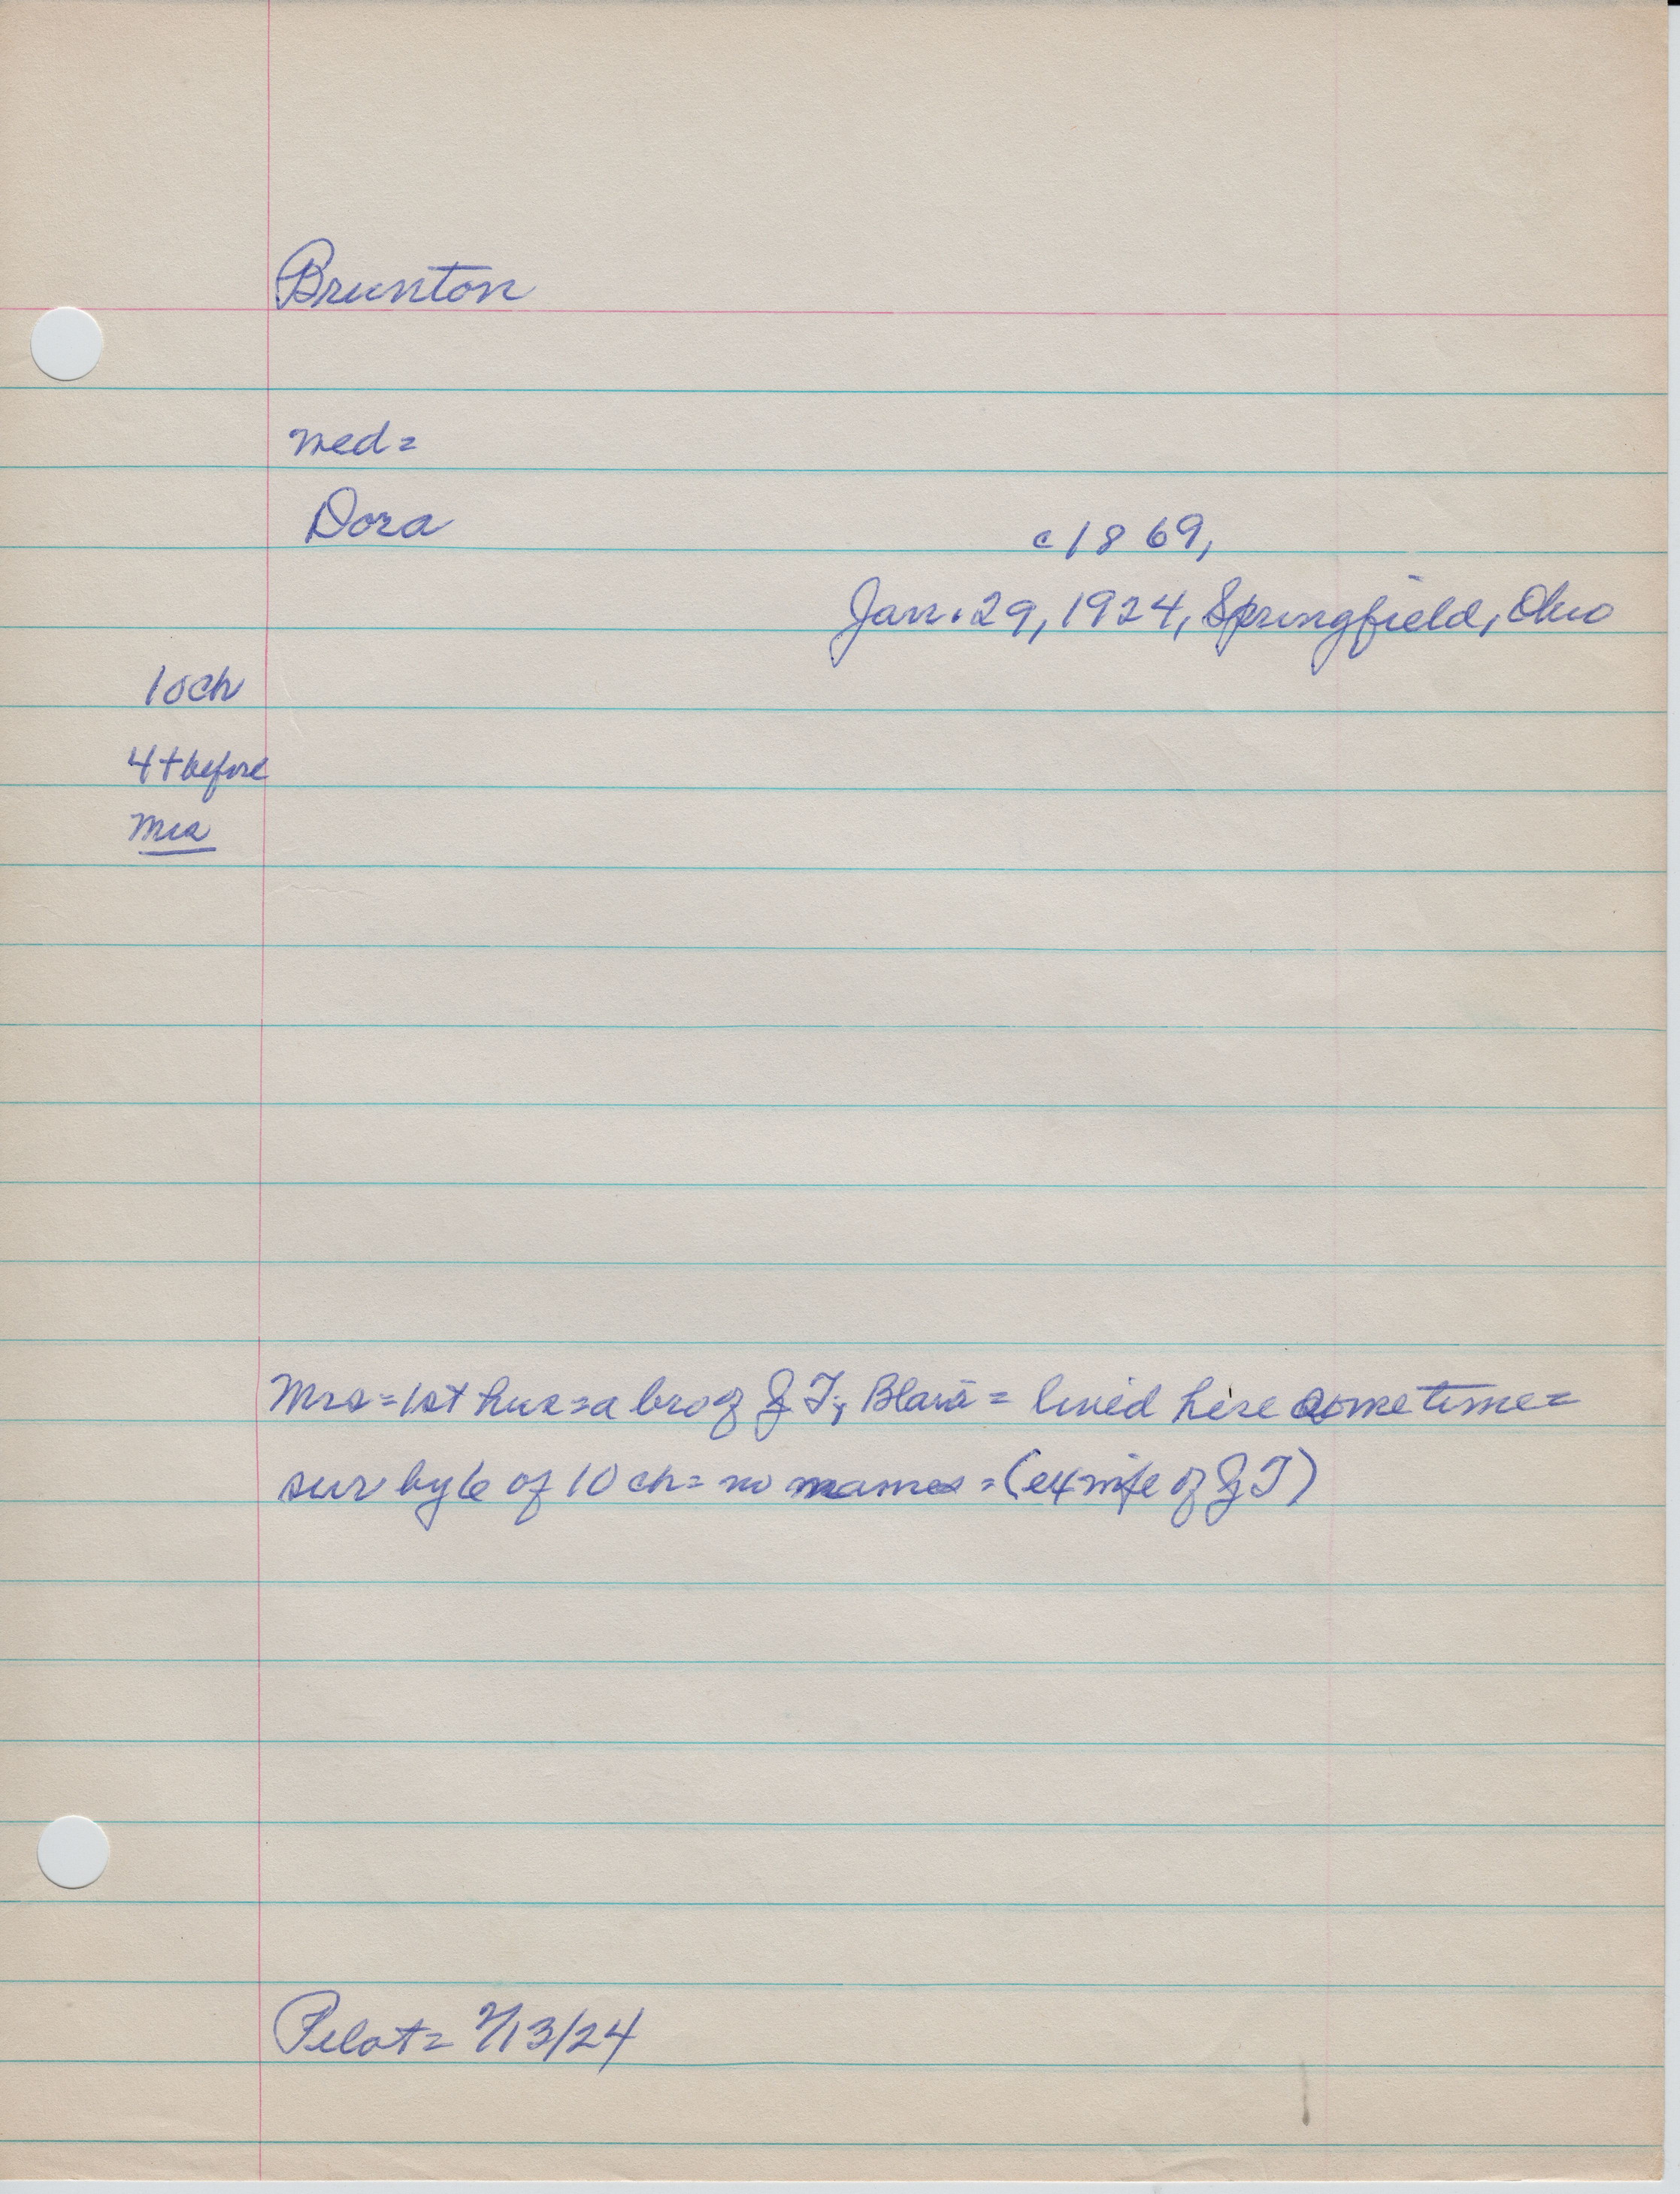 Brunton
med=
Dora
c1869,
Jan. 29, 1924, Springfield, Ohio
10ch
4 + before
Mrs
Mrs=1st hus=a bro of J T, Blair= lived here sometime=
sur by 6 of 10 ch= no names =(ex wife of J T)
Pilot= 2/13/24